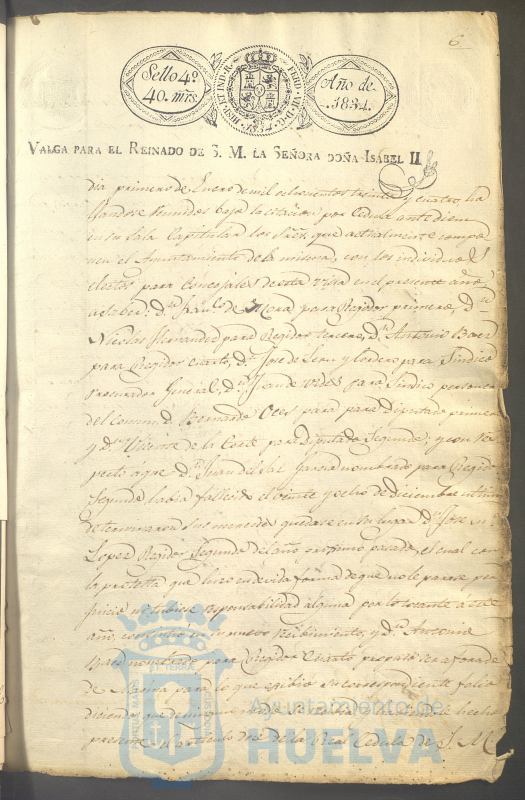 6
Sello 4º
40. mrs.
HISP. ET IND. R. FERD. VII. D. G. 1834.
Año de
1834.
VALGA PARA EL REINADO DE S. M. LA SEÑORA DOÑA ISABEL II
dia primero de Enero de mil ochocientos treinta y cuatro, ha
llandose reunidos bajo la citacion por Cedula ante diem
en su Sala Capitular los Sres. que actualmente compo
nen el Ayuntamiento de la misma, con los individuos
electos para Concejales de esta Villa en el presente año
a saber: Dn. Franco. de Mora para Regidor primero, Dn.
Nicolas Hernandez para Regidor tercero, Dn. Antonio Baez
para Regidor Cuarto, Dn. Jose de Leon y Cordero para Sindico
Procurador General, Dn. Juan de para Sindico personero
del Comun, Dn. Bernardo para para Diputado primero
y Dn. Vicente de la Corte para Diputado Segundo; y con res
pecto a que Dn. Juan del Sal Garcia nombrado para Regidor
Segundo habia fallecido el veinte y ocho de diciembre ultimo
determinaron sus mercedes quedase en su lugar Dn. Jose
Lopez Regidor Segundo del año proximo pasado, el cual con
la protesta que hizo en devida forma de que no le parase per
juicio ni tubiese responsabilidad alguna por lo tocante á este
año, en su nuevo recibimiento, y Dn. Antonio
Baez nombrado para Regidor Cuarto
de Marina para lo que su correspondiente
diciendo que de ninguna
presente el articulo de la Real Cedula de S. M.
Ayuntamiento de
HUELVA